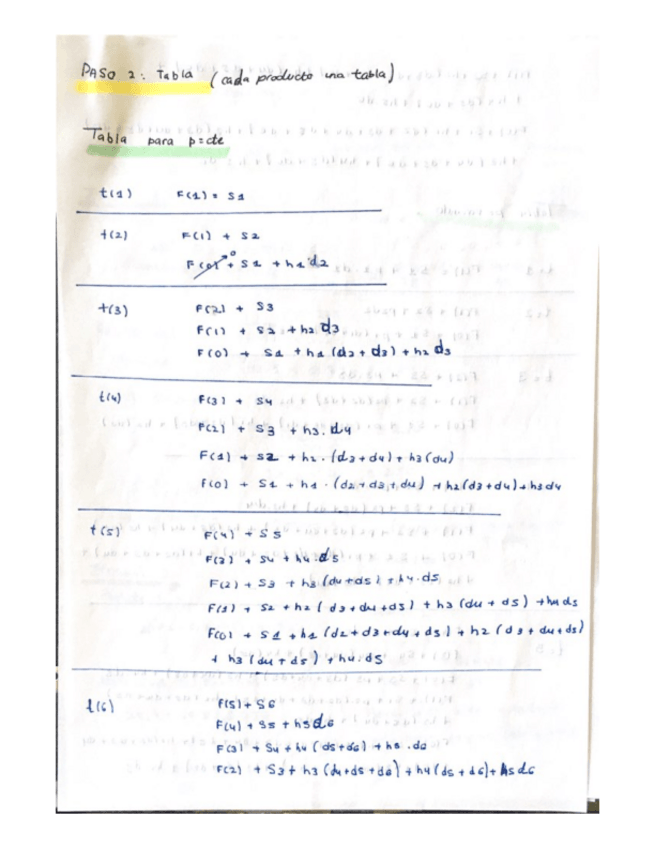 PASO 2: Tabla (cada producto una tabla)
Tabla para p=cte
t(1) F(1) = S1
t(2) F(1) + S2
F(0) + S1 + h1·d2
t(3) F(2) + S3
F(1) + S2 + h2 d3
F(0) + S1 + h1 (d2 + d3) + h2 d3
t(4) F(3) + S4
F(2) + S3 + h3. d4
F(1) + S2 + h2. (d3+d4) + h3(d4)
F(0) + S1 + h1. (d2+d3+d4) + h2(d3+d4)+h3d4
t(5) F(4) + S5
F(3) + S4 + h4.d5
F(2) + S3 + h3 (d4+d5) + h4.d5
F(1) + S2 + h2 ( d3+d4+d5) + h3 (d4 + d5) + h4d5
F(0) + S1 + h1 (d2+d3+d4+d5) + h2 (d3+d4+d5)
+ h3 (d4+d5) + h4.d5
t(6) F(5) + S6
F(4) + S5 + h5d6
F(3) + S4 + h4 (d5+d6) + h5.d6
F(2) + S3 + h3 (d4+d5+d6) + h4 (d5 + d6) + h5d6